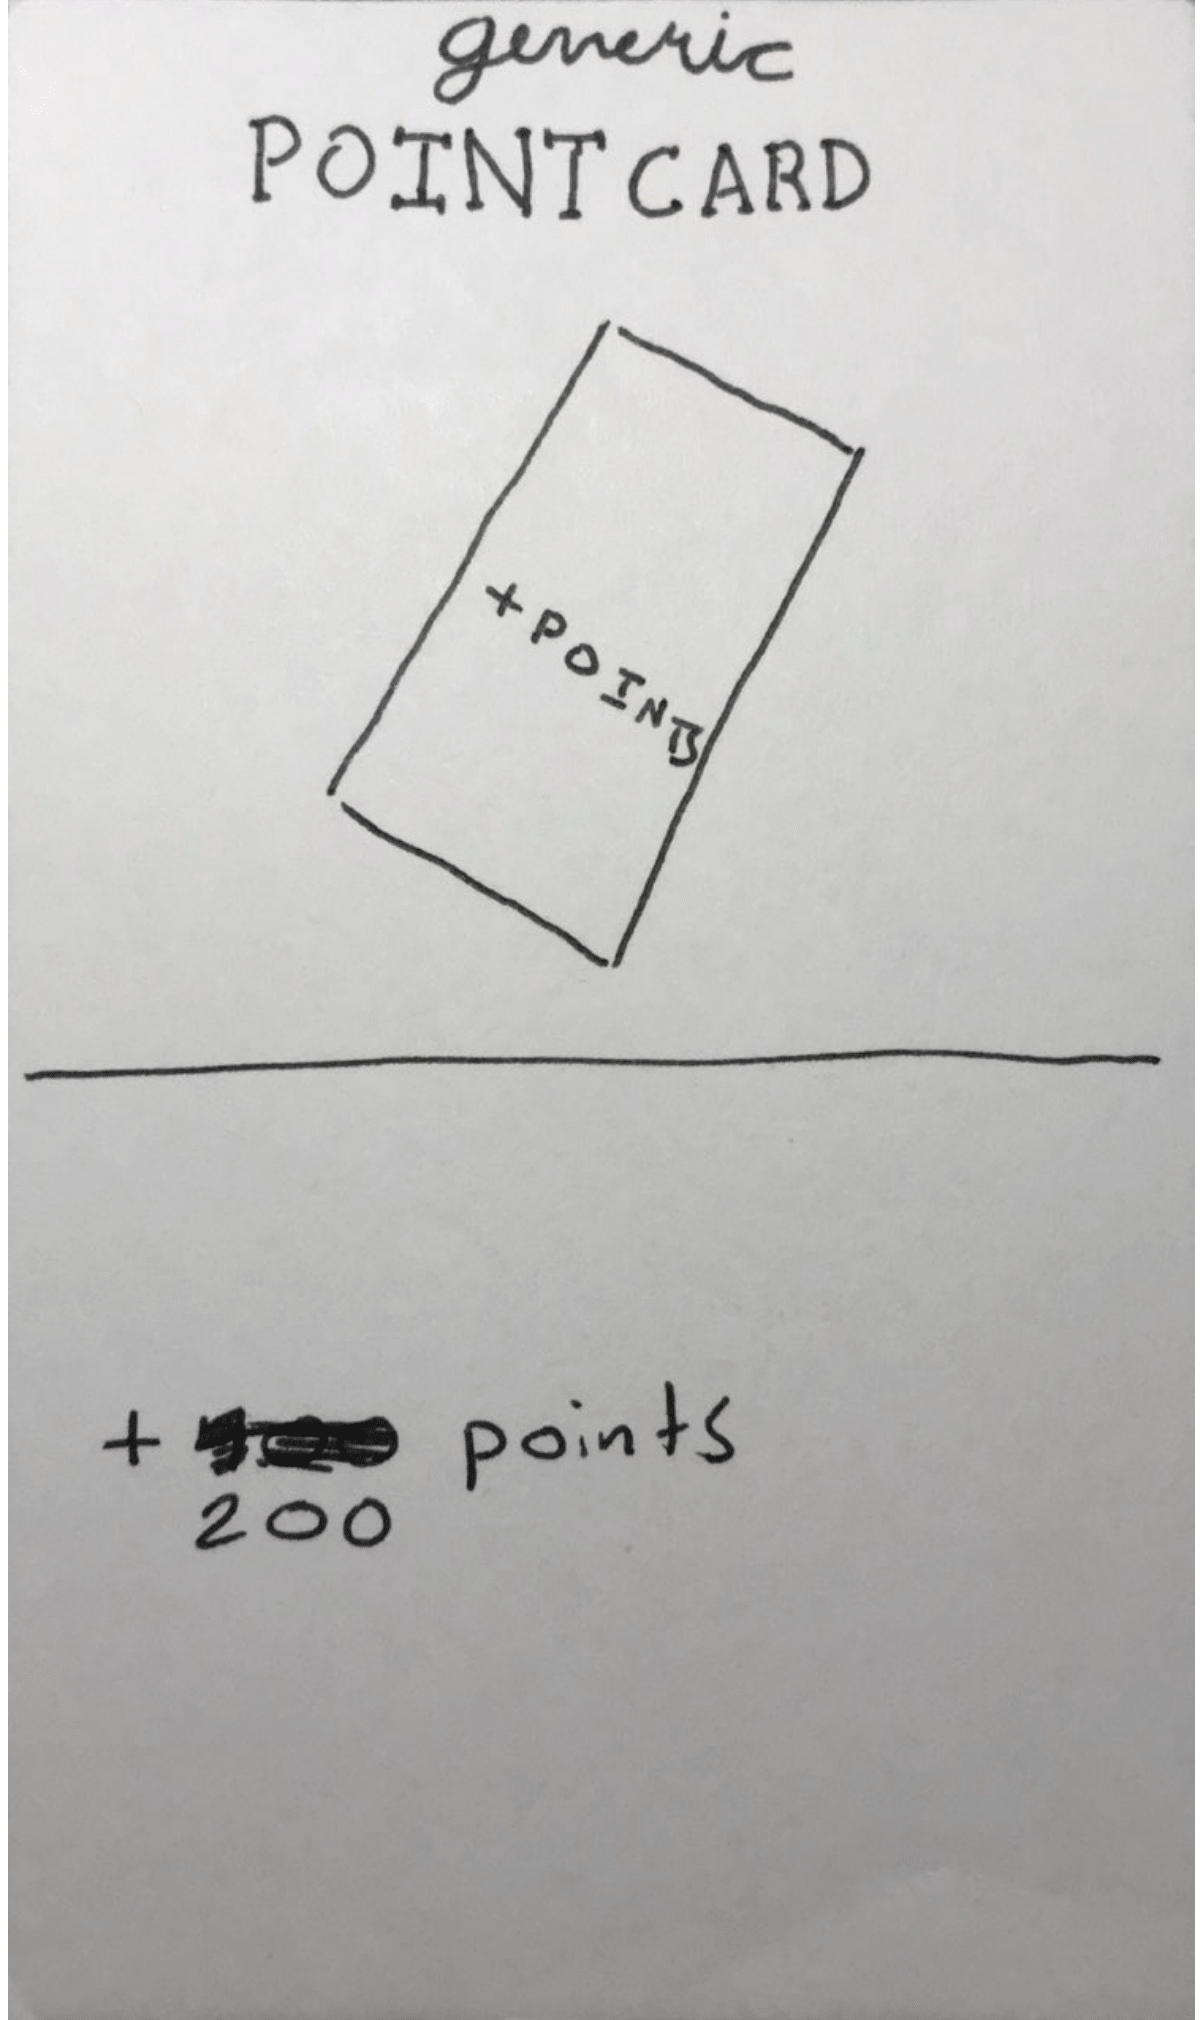 generic
POINT CARD
+POINTS
+ points
200